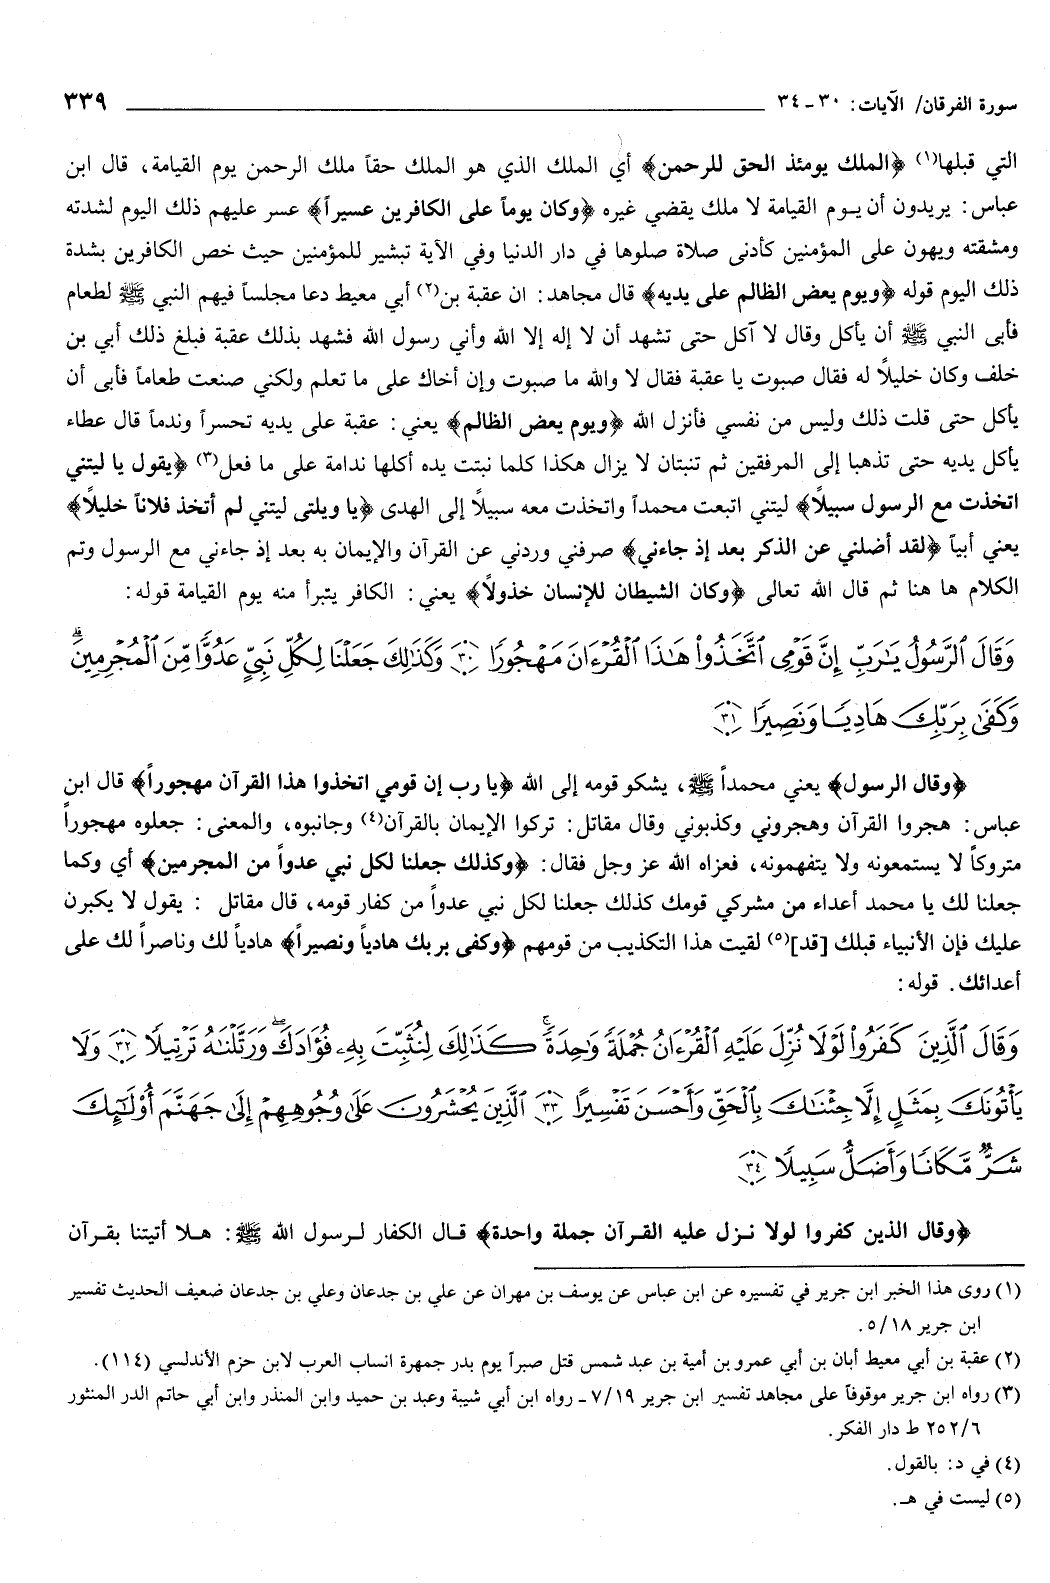 سورة الفرقان/ الآيات: ٣٠ ـ ٣٤ ٣٣٩
التي قبلها(١) ﴿الملك يومئذ الحق للرحمن﴾ أي الملك الذي هو الملك حقاً ملك الرحمن يوم القيامة، قال ابن
عباس: يريدون أن يـوم القيامة لا ملك يقضي غيره ﴿وكان يوماً على الكافرين عسيراً﴾ عسر عليهم ذلك اليوم لشدته
ومشقته ويهون على المؤمنين كأدنى صلاة صلوها في دار الدنيا وفي الآية تبشير للمؤمنين حيث خص الكافرين بشدة
ذلك اليوم قوله ﴿ويوم يعض الظالم على يديه﴾ قال مجاهد: ان عقبة بن(٢) أبي معيط دعا مجلساً فيهم النبي ﷺ لطعام
فأبى النبي ﷺ أن يأكل وقال لا آكل حتى تشهد أن لا إله إلا الله وأني رسول الله فشهد بذلك عقبة فبلغ ذلك أبي بن
خلف وكان خليلاً له فقال صبوت يا عقبة فقال لا والله ما صبوت وإن أخاك على ما تعلم ولكني صنعت طعاماً فأبى أن
يأكل حتى قلت ذلك وليس من نفسي فأنزل الله ﴿ويوم يعض الظالم﴾ يعني: عقبة على يديه تحسراً وندماً قال عطاء
يأكل يديه حتى تذهبا إلى المرفقين ثم تنبتان لا يزال هكذا كلما نبتت يده أكلها ندامة على ما فعل(٣) ﴿يقول يا ليتني
اتخذت مع الرسول سبيلاً﴾ ليتني اتبعت محمداً واتخذت معه سبيلاً إلى الهدى ﴿يا ويلتى ليتني لم أتخذ فلاناً خليلاً﴾
يعني أبياً ﴿لقد أضلني عن الذكر بعد إذ جاءني﴾ صرفني وردني عن القرآن والإيمان به بعد إذ جاءني مع الرسول وتم
الكلام ها هنا ثم قال الله تعالى ﴿وكان الشيطان للإنسان خذولاً﴾ يعني: الكافر يتبرأ منه يوم القيامة قوله:
وَقَالَ ٱلرَّسُولُ يَٰرَبِّ إِنَّ قَوْمِى ٱتَّخَذُوا۟ هَٰذَا ٱلْقُرْءَانَ مَهْجُورًا ٣٠ وَكَذَٰلِكَ جَعَلْنَا لِكُلِّ نَبِىٍّ عَدُوًّا مِّنَ ٱلْمُجْرِمِينَ ۗ
وَكَفَىٰ بِرَبِّكَ هَادِيًا وَنَصِيرًا ٣١
﴿وقال الرسول﴾ يعني محمداً ﷺ، يشكو قومه إلى الله ﴿يا رب إن قومي اتخذوا هذا القرآن مهجوراً﴾ قال ابن
عباس: هجروا القرآن وهجروني وكذبوني وقال مقاتل: تركوا الإيمان بالقرآن(٤) وجانبوه، والمعنى: جعلوه مهجوراً
متروكاً لا يستمعونه ولا يتفهمونه، فعزاه الله عز وجل فقال: ﴿وكذلك جعلنا لكل نبي عدواً من المجرمين﴾ أي وكما
جعلنا لك يا محمد أعداء من مشركي قومك كذلك جعلنا لكل نبي عدواً من كفار قومه، قال مقاتل : يقول لا يكبرن
عليك فإن الأنبياء قبلك [قد](٥) لقيت هذا التكذيب من قومهم ﴿وكفى بربك هادياً ونصيراً﴾ هادياً لك وناصراً لك على
أعدائك. قوله:
وَقَالَ ٱلَّذِينَ كَفَرُوا۟ لَوْلَا نُزِّلَ عَلَيْهِ ٱلْقُرْءَانُ جُمْلَةً وَٰحِدَةً ۚ كَذَٰلِكَ لِنُثَبِّتَ بِهِۦ فُؤَادَكَ ۖ وَرَتَّلْنَٰهُ تَرْتِيلًا ٣٢ وَلَا
يَأْتُونَكَ بِمَثَلٍ إِلَّا جِئْنَٰكَ بِٱلْحَقِّ وَأَحْسَنَ تَفْسِيرًا ٣٣ ٱلَّذِينَ يُحْشَرُونَ عَلَىٰ وُجُوهِهِمْ إِلَىٰ جَهَنَّمَ أُو۟لَٰٓئِكَ
شَرٌّ مَّكَانًا وَأَضَلُّ سَبِيلًا ٣٤
﴿وقال الذين كفروا لولا نـزل عليه القـرآن جملة واحدة﴾ قـال الكفار لـرسول الله ﷺ: هـلا أتيتنا بقـرآن
(١) روى هذا الخبر ابن جرير في تفسيره عن ابن عباس عن يوسف بن مهران عن علي بن جدعان وعلي بن جدعان ضعيف الحديث تفسير
ابن جرير ٥/١٨.
(٢) عقبة بن أبي معيط أبان بن أبي عمرو بن أمية بن عبد شمس قتل صبراً يوم بدر جمهرة انساب العرب لابن حزم الأندلسي (١١٤).
(٣) رواه ابن جرير موقوفاً على مجاهد تفسير ابن جرير ٧/١٩ ـ رواه ابن أبي شيبة وعبد بن حميد وابن المنذر وابن أبي حاتم الدر المنثور
٢٥٢/٦ ط دار الفكر.
(٤) في د: بالقول.
(٥) ليست في هـ.